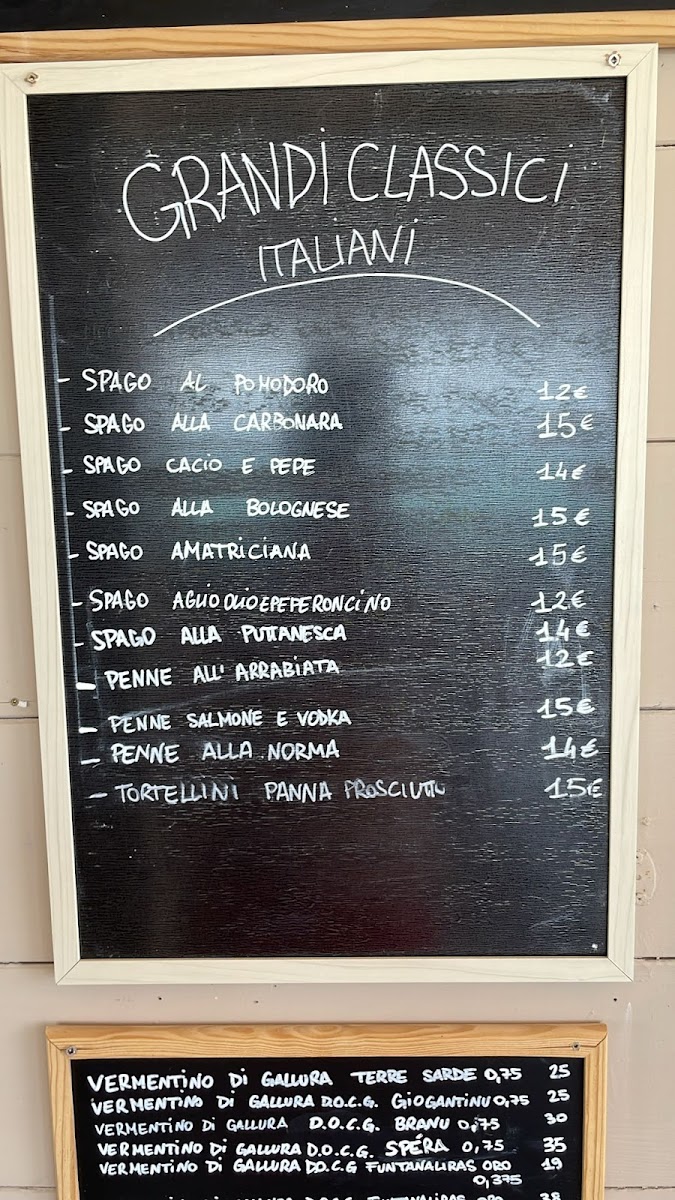 GRANDI CLASSICI
ITALIANI
- SPAGO AL POMODORO 12€
- SPAGO ALLA CARBONARA 15€
- SPAGO CACIO E PEPE 14€
- SPAGO ALLA BOLOGNESE 15€
- SPAGO AMATRICIANA 15€
- SPAGO AGLIO OLIO E PEPERONCINO 12€
- SPAGO ALLA PUTTANESCA 14€
- PENNE ALL'ARRABIATA 12€
- PENNE SALMONE E VODKA 15€
- PENNE ALLA NORMA 14€
- TORTELLINI PANNA PROSCIUTTO 15€
VERMENTINO DI GALLURA TERRE SARDE 0,75 25
VERMENTINO DI GALLURA D.O.C.G. GIOGANTINU 0,75 25
VERMENTINO DI GALLURA D.O.C.G. BRANU 0,75 30
VERMENTINO DI GALLURA D.O.C.G. SPÉRA 0,75 35
VERMENTINO DI GALLURA D.O.C.G FUNTANALIRAS ORO 19
0,375